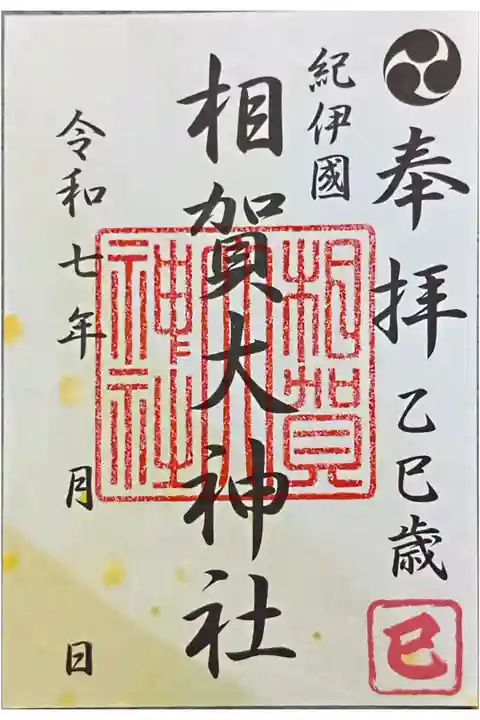 奉拝 乙巳歳
巳
紀伊國
相賀大神社
相賀大神社
令和七年 月 日